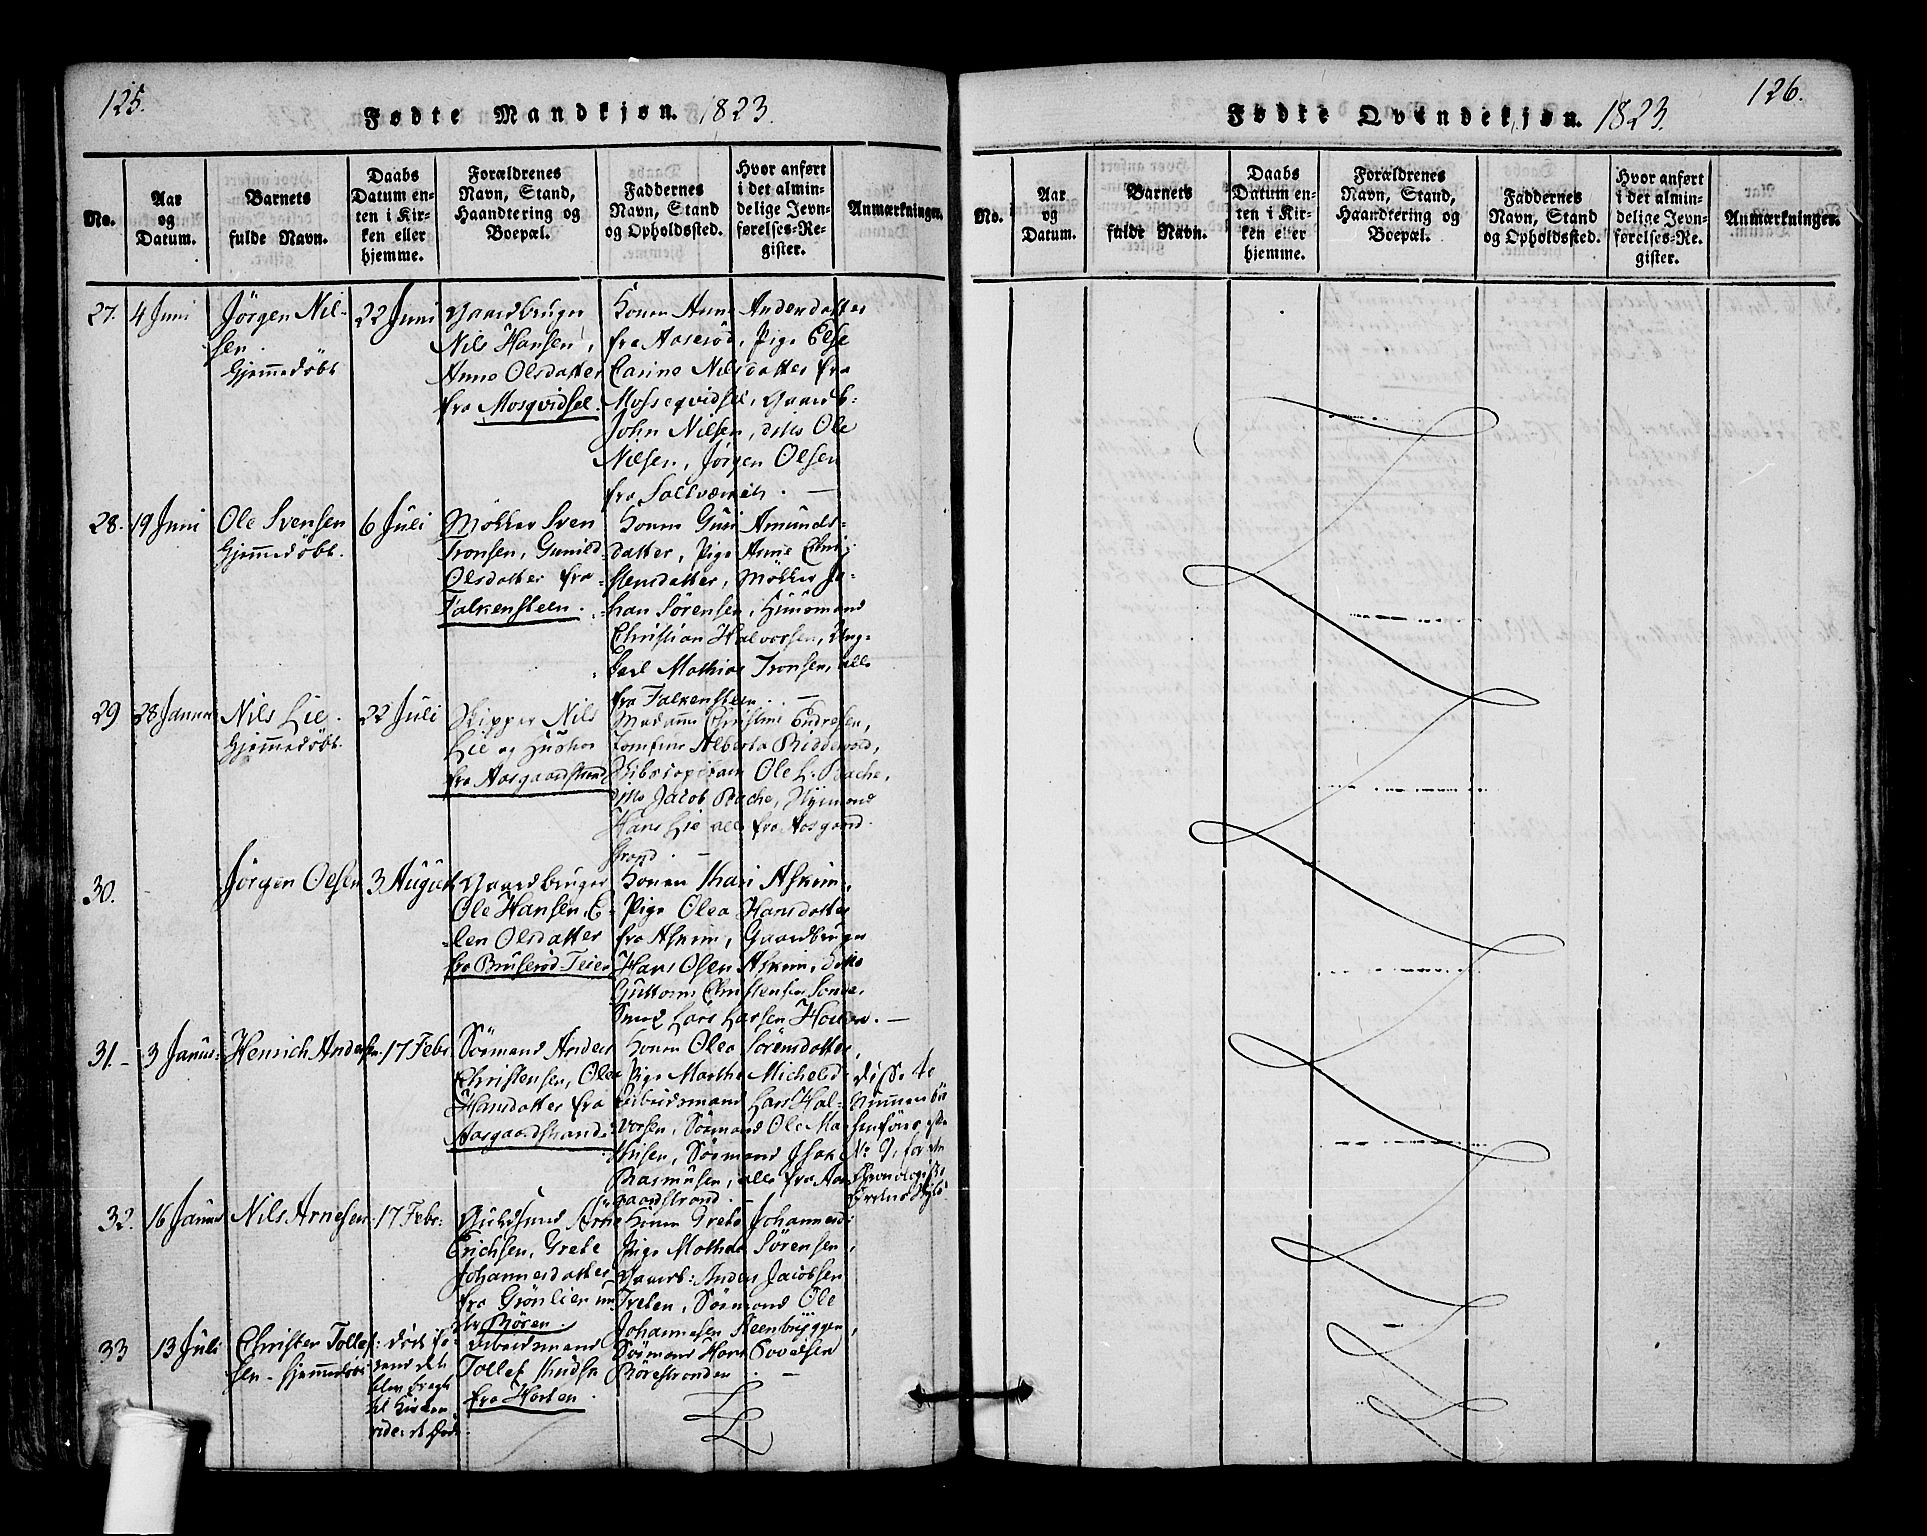 125.
Fødte Mandkjøn. 1823.
No.
Aar
og
Datum.
Barnets
fulde Navn.
Daabs
Datum en-
ten i Kir-
ken eller
hjemme.
Forældrenes
Navn, Stand,
Haandtering og
Boepæl.
Faddernes
Navn, Stand
og Opholdssted.
Hvor anført
i det almin-
delige Jevn-
førelses-Re-
gister.
Anmærkninger.
27.
4 Juni
Jörgen Nil-
sen.
Hjemmedöbt
22 Juni
Gaardbruger
Nils Hansen,
Anne Olsdatter
fra Mosqvidsel.
Konen Anne Andersdatter
fra Aaseröd, Pige Else
Carine Nilsdatter fra
Mosseqvidsel, Gaardb.
John Nilsen, ditto Ole
Nilsen, Jörgen Olsen
fra
28.
19 Juni
Ole Svensen
Hjemmedöbt.
6 Juli
Möller Sven
Tronsen, Gunild
Olsdatter fra
Falkensteen.
Konen Guri Amunds-
datter, Pige Anne Chri-
stensdatter, Möller Jo-
han Sörensen, Huusmand
Christian Halvorsen, Ung-
karl Mathias Tronsen, alle
fra Falkensteen. —
29
28 Januar
Nils Lie.
Hjemmedöbt.
22 Juli
Skipper Nils
Lie og Hustro
fra Aasgaardstrand
Madame Christine Endresen,
Jomfrue Alberta Riddervold,
Ole L. Bache,
ditto Jacob Bache,
Hans Lie alle fra Aasgaard-
strand. —
30.
Jörgen Olsen
3 August
Gaardbruger
Ole Hansen, E-
len Olsdatter
fra Bruseröd-Teien
Konen Kari Askim,
Pige Olea Hansdatter
fra Askim, Gaardbruger
Hans Olsen Askim, ditto
Guttorm Christensen
Lars Larsen —
31. -
3 Januar
Henrich Andersen
17 Febr.
Sömand Anders
Christensen, Olea
Hansdatter fra
Aasgaardstrand
Konen Olea Sörensdatter,
Pige Marthe Michelsd.
Arbeidsmand Lars Hal-
vorsen, Sömand Ole Mar-
thisen, Sömand Isak
Rasmusen, alle fra Aas-
gaardstrand. —
Disse to
No 9, for den
Chronologiske
32.
16 Januar
Nils Arnesen
17 Febr:
Arne
Erichsen, Grete
Johannesdatter
fra Grönlien un-
der Rören.
Konen Grete Johannesd:
Pige Mathea Sörensen,
Gaardb: Anders Jacobsen
Sömand Ole
Johannesen Steenbryggen,
Sömand Hans Povelsen
Rörestranden. —
33
13 Juli
Christen Tollef-
sen - Hjemmedöbt
Arbeidsmand
Tollef Knudsen
fra Horten.
126.
Fødte Qvindekjøn. 1823.
No.
Aar
og
Datum.
Barnets
fulde Navn.
Daabs
Datum en-
ten i Kir-
ken eller
hjemme.
Forældrenes
Navn, Stand,
Haandtering og
Boepæl.
Faddernes
Navn, Stand
og Opholdssted.
Hvor anført
i det almin-
delige Jevn-
førelses-Re-
gister.
Anmærkninger.